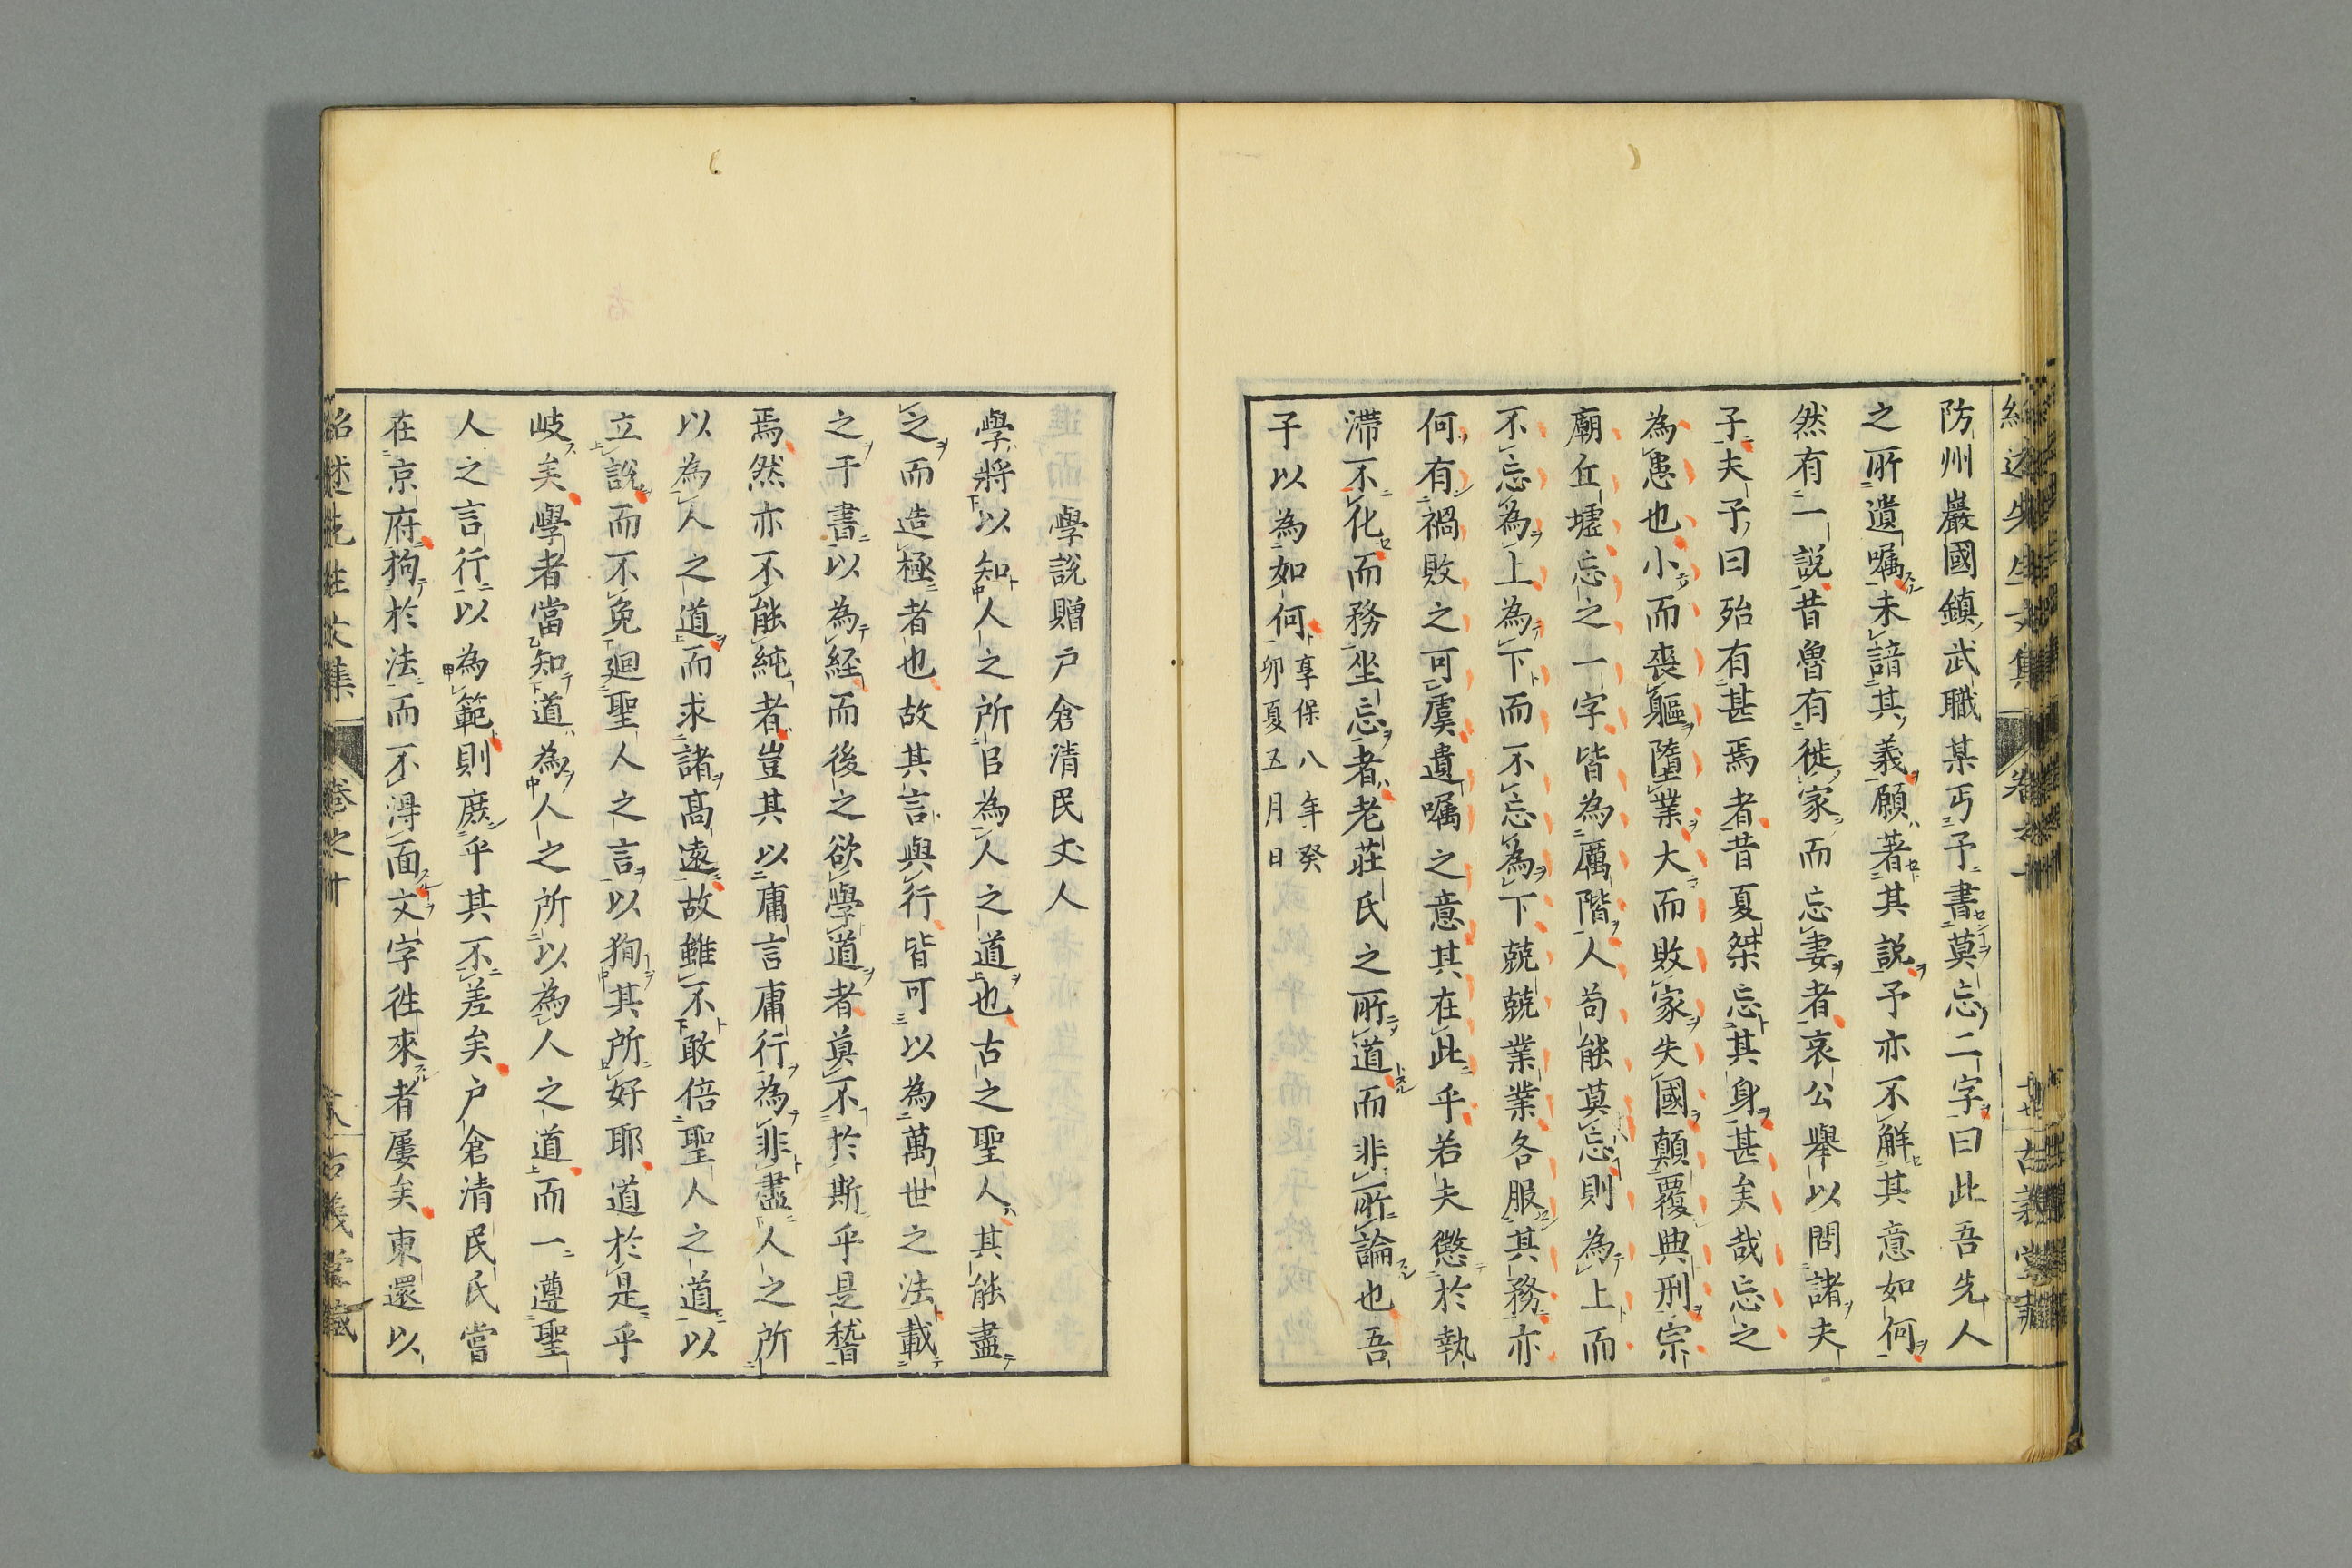 防州巖國鎮武職某丐予書莫忘二字曰此吾先人
之所遺嘱未諳其義願著其説予亦不解其意如何
然有一説昔魯有徙家而忘妻者哀公舉以問諸夫
子夫子曰殆有甚焉者昔夏桀忘其身甚矣哉忘之
為患也小而喪軀墮業大而敗家失國顛覆典刑宗
廟丘墟忘之一字皆為厲階人苟能莫忘則為上而
不忘為上為下而不忘為下兢兢業業各服其務亦
何有禍敗之可虞遺嘱之意其在此乎若夫懲於執
滞不化而務坐忘者老荘氏之所道而非所論也吾
子以為如何
享保八年癸
卯夏五月日
學説贈戸倉清民丈人
學將以知人之所㠯為人之道也古之聖人其能盡
之而造極者也故其言與行皆可以為萬世之法載
之于書以為経而後之欲學道者莫不於斯乎是稽
焉然亦不能純者豈其以庸言庸行為非盡人之所
以為人之道而求諸髙遠故雖不敢倍聖人之道以
立説而不免廻聖人之言以狥其所好耶道於是乎
岐矣學者當知道為人之所以為人之道而一遵聖
人之言行以為範則庶乎其不差矣戸倉清民氏嘗
在京府拘於法而不得面文字徃來者屢矣東還以
紹述先生文集
卷之十
古義堂藏